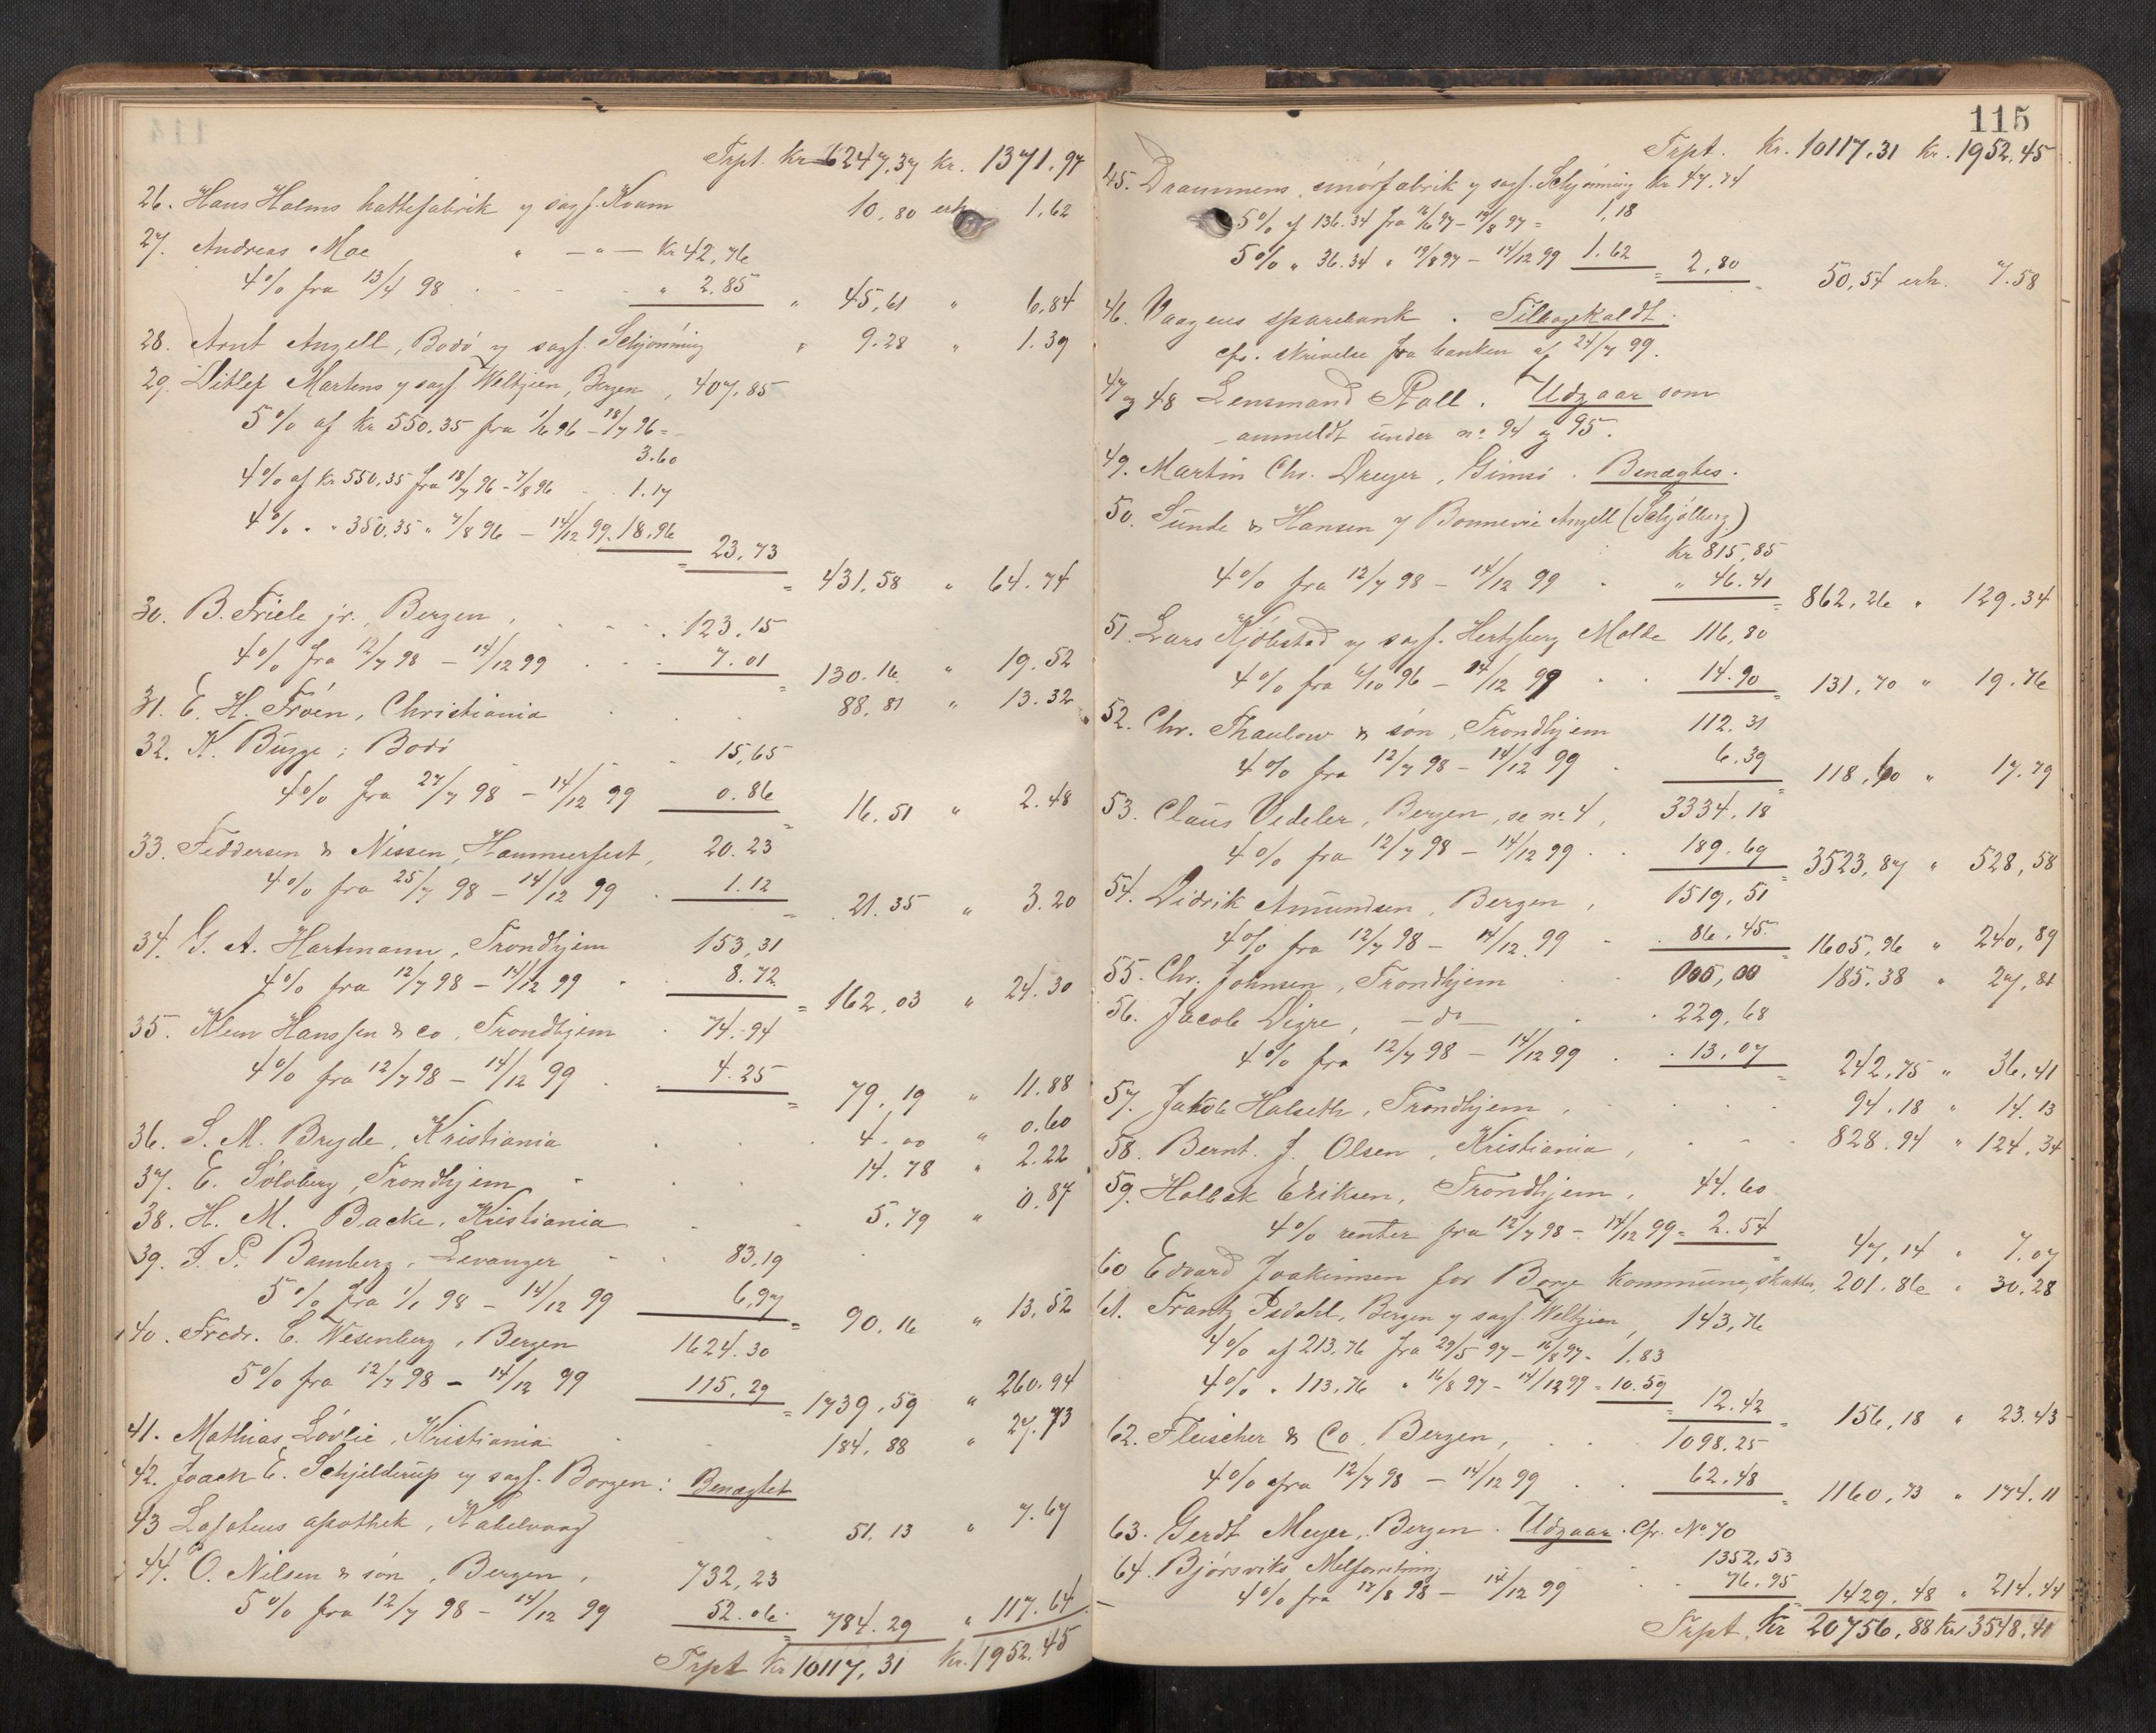 Trpt. kr 6247,37 kr. 1371.97
26. Hans Holms hattefabrik v sagf. Kvam 10,80 erh. 1,62
27. Andreas Moe " — " — Kr 42,76
4% fra 13/4 98 . . . " 2.85 " 45,61 " 6,84
28. Arnt Angell, Bodø v sagf. Schjønning " 9.28 " 1.39
29. Ditlef Martens v sagf. Weltzien, Bergen, 407.85
5% af kr 550.35 fra 1/6 96 – 18/7 96 =
3.60
4% af kr 550,35 fra 18/7 96 – 7/8 96 . . 1.17
4% " " 350.35 " 7/8 96 – 14/12 99. 18.96
= 23,73
= 431.58 " 64.74
30. B. Friele jr., Bergen, . . . 123.15
4% fra 12/7 98 – 14/12 99 . . . 7.01 = 130.16 " 19.52
31. E. H. Frøen, Christiania . . . 88,81 " 13.32
32. K. Bugge, Bodø . . . 15,65
4% fra 27/7 98 – 14/12 99 0.86 = 16.51 " 2.48
33. Feddersen & Nissen, Hammerfest, 20.23
4% fra 25/7 98 – 14/12 99 . 1.12 = 21.35 " 3.20
34. G. A. Hartmann, Trondhjem 153,31
4% fra 12/7 98 – 14/12 99 . . 8.72 = 162,03 " 24.30
35. Klem Hanssen & co, Trondhjem . 74.94
4% fra 12/7 98 – 14/12 99 . 4.25 = 79.19 " 11.88
36. S. M. Bryde, Kristiania . . . 4.00 " 0.60
37. E. Solberg, Trondhjem . . . 14.78 " 2.22
38. H. M. Backe, Kristiania . . 5.79 " 0.87
39. J. P. Bamberg, Levanger . . 83.19
5% fra 1/1 98 – 14/12 99 6,97 = 90.16 " 13,52
40. Fredr. C. Wesenberg, Bergen 1624.30
5% fra 12/7 98 – 14/12 99 115,29 = 1739,59 " 260.94
41. Mathias Løvlie, Kristiania . . 184.88 " 27.73
42. Joach E. Schjelderup v sagf. Borgen: Benægtet
43 Lofotens apothek, Kabelvaag . . 51.13 " 7.67
44. O. Nilsen & søn, Bergen, 732,23
5% fra 12/7 98 – 14/12 99 52.06 = 784.29 " 117.64
Trpt Kr 10117,31 kr. 1952.45
115
Trpt. Kr. 10117,31 kr. 1952.45
45. Drammens smørfabrik v sagf. Schjønning kr 47,74
5% af 136.34 fra 16/6 97 – 19/8 97 = 1,18
5% " 36.34 " 19/8 97 – 14/12 99 1.62 = 2,80 50,54 erh. 7.58
46. Vaagens sparebank . Tilbagekaldt.
cfr. skrivelse fra banken af 24/7 99.
47 og 48 Lensmand Roll. Udgaar som
anmeldt under no. 94 og 95.
49. Martin Chr. Dreyer, Gimsø. Benægtes.
50. Sunde & Hansen v Bonnevie Angell (Schjølberg)
Kr 815,85
4% fra 12/7 98 – 14/12 99 . " 46.41 = 862,26 " 129.34
51. Lars Kjølstad v sagf. Hertzberg Molde 116,80
4% fra 6/10 96 – 14/12 99 . . 14.90 = 131,70 " 19.76
52. Chr. Thaulow & søn, Trondhjem 112.31
4% fra 12/7 98 – 14/12 99 . 6.39 = 118,60 " 17.79
53. Claus Vedeler, Bergen, se no. 4, 3334.18
4% fra 12/7 98 – 14/12 99 . . 189.69 = 3523,87 " 528,58
54. Didrik Amundsen, Bergen, 1519,51
4% fra 12/7 98 – 14/12 99 . 86,45 = 1605,96 " 240,89
55. Chr. Johnsen, Trondhjem . 185.38 " 27,81
56. Jacob Digre, — do — . 229,68
4% fra 12/7 98 – 14/12 99 . . 13,07 = 242,75 " 36,41
57. Jakob Halseth, Trondhjem, . . . 94.18 " 14.13
58. Bernt. J. Olsen, Kristiania, . . . 828.94 " 124.34
59. Halbak Eriksen, Trondhjem, 44.60
4% renter fra 12/7 98 – 14/12 99 = 2.54 = 47,14 " 7.07
60 Edvard Joakimsen for Borge kommune, skatter, 201.86 " 30.28
61. Frantz Isdahl, Bergen v sagf. Weltzien, 143,76
4% af 213.76 fra 29/5 97 – 16/8 97 – 1,83
4% " 113,76 " 16/8 97 – 14/12 99 = 10.59 = 12.42 = 156,18 " 23.43
62. Fleischer & Co, Bergen, . . 1098.25
4% fra 12/7 98 – 14/12 99 . . 62.48 = 1160,73 " 174.11
63. Gerdt Meyer, Bergen. Udgaar. Cfr. No 70
64. Bjørsviks Melforretning 1352,53
4% fra 12/8 98 – 14/12 99 . . 76.95 = 1429.48 " 214.44
Trpt. Kr 20756,88 Kr 3548.41